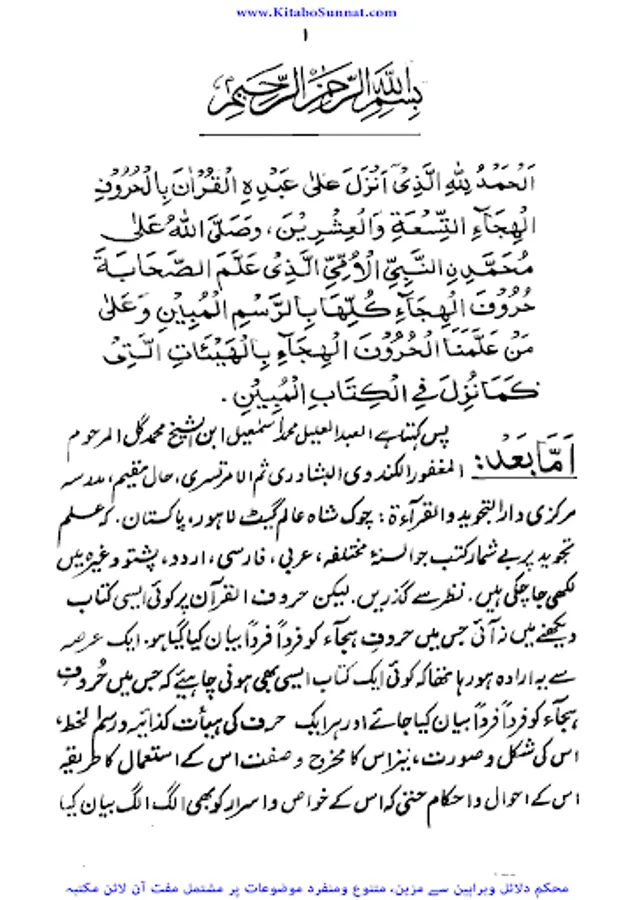 www.KitaboSunnat.com
۱
بِسْمِ اللهِ الرَّحْمٰنِ الرَّحِيْمِ
اَلْحَمْدُ لِلّٰهِ الَّذِىْ اَنْزَلَ عَلىٰ عَبْدِهِ الْقُرْاٰنَ بِالْحُرُوْفِ
الْهِجَآءِ التِّسْعَةِ وَالْعِشْرِيْنَ، وَصَلَّى اللهُ عَلىٰ
مُحَمَّدِنِ النَّبِىِّ الْاُمِّىِّ الَّذِىْ عَلَّمَ الصَّحَابَةَ
حُرُوْفَ الْهِجَآءِ كُلِّهَا بِالرَّسْمِ الْمُبِيْنِ وَعَلىٰ
مَنْ عَلَّمَنَا الْحُرُوْفَ الْهِجَآءِ بِالْهَيْئَاتِ الَّتِىْ
كَمَا نُزِلَ فِى الْكِتَابِ الْمُبِيْنِ .
اَمَّا بَعْدُ: پس کہتا ہے العبد العلیل محمد اسمٰعیل ابن الشیخ محمد گل المرحوم
المغفور الکندوی البشاوری ثم الامرتسری، حال مقیم، مدرسہ
مرکزی دار التجوید والقرآءة: چوک شاہ عالم گیٹ لاہور، پاکستان. کہ علم
تجوید پر بے شمار کتب جو السنۂ مختلفہ، عربی، فارسی، اردو، پشتو وغیرہ میں
لکھی جا چکی ہیں. نظر سے گذریں. لیکن حروف القرآن پر کوئی ایسی کتاب
دیکھنے میں نہ آئی جس میں حروف ہجآء کو فرداً فرداً بیان کیا گیا ہو. ایک عرصہ
سے یہ ارادہ ہو رہا تھا کہ کوئی ایک کتاب ایسی بھی ہونی چاہیئے کہ جس میں حُروفِ
ہجآء کو فرداً فرداً بیان کیا جائے اور ہر ایک حرف کی ہیأت کذائیہ ورسم الخط،
اس کی شکل و صورت، نیز اس کا مخرج و صفت اس کے استعمال کا طریقہ
اس کے احوال و احکام حتیٰ کہ اس کے خواص و اسرار کو بھی الگ الگ بیان کیا
محکم دلائل وبراہین سے مزین، متنوع ومنفرد موضوعات پر مشتمل مفت آن لائن مکتبہ